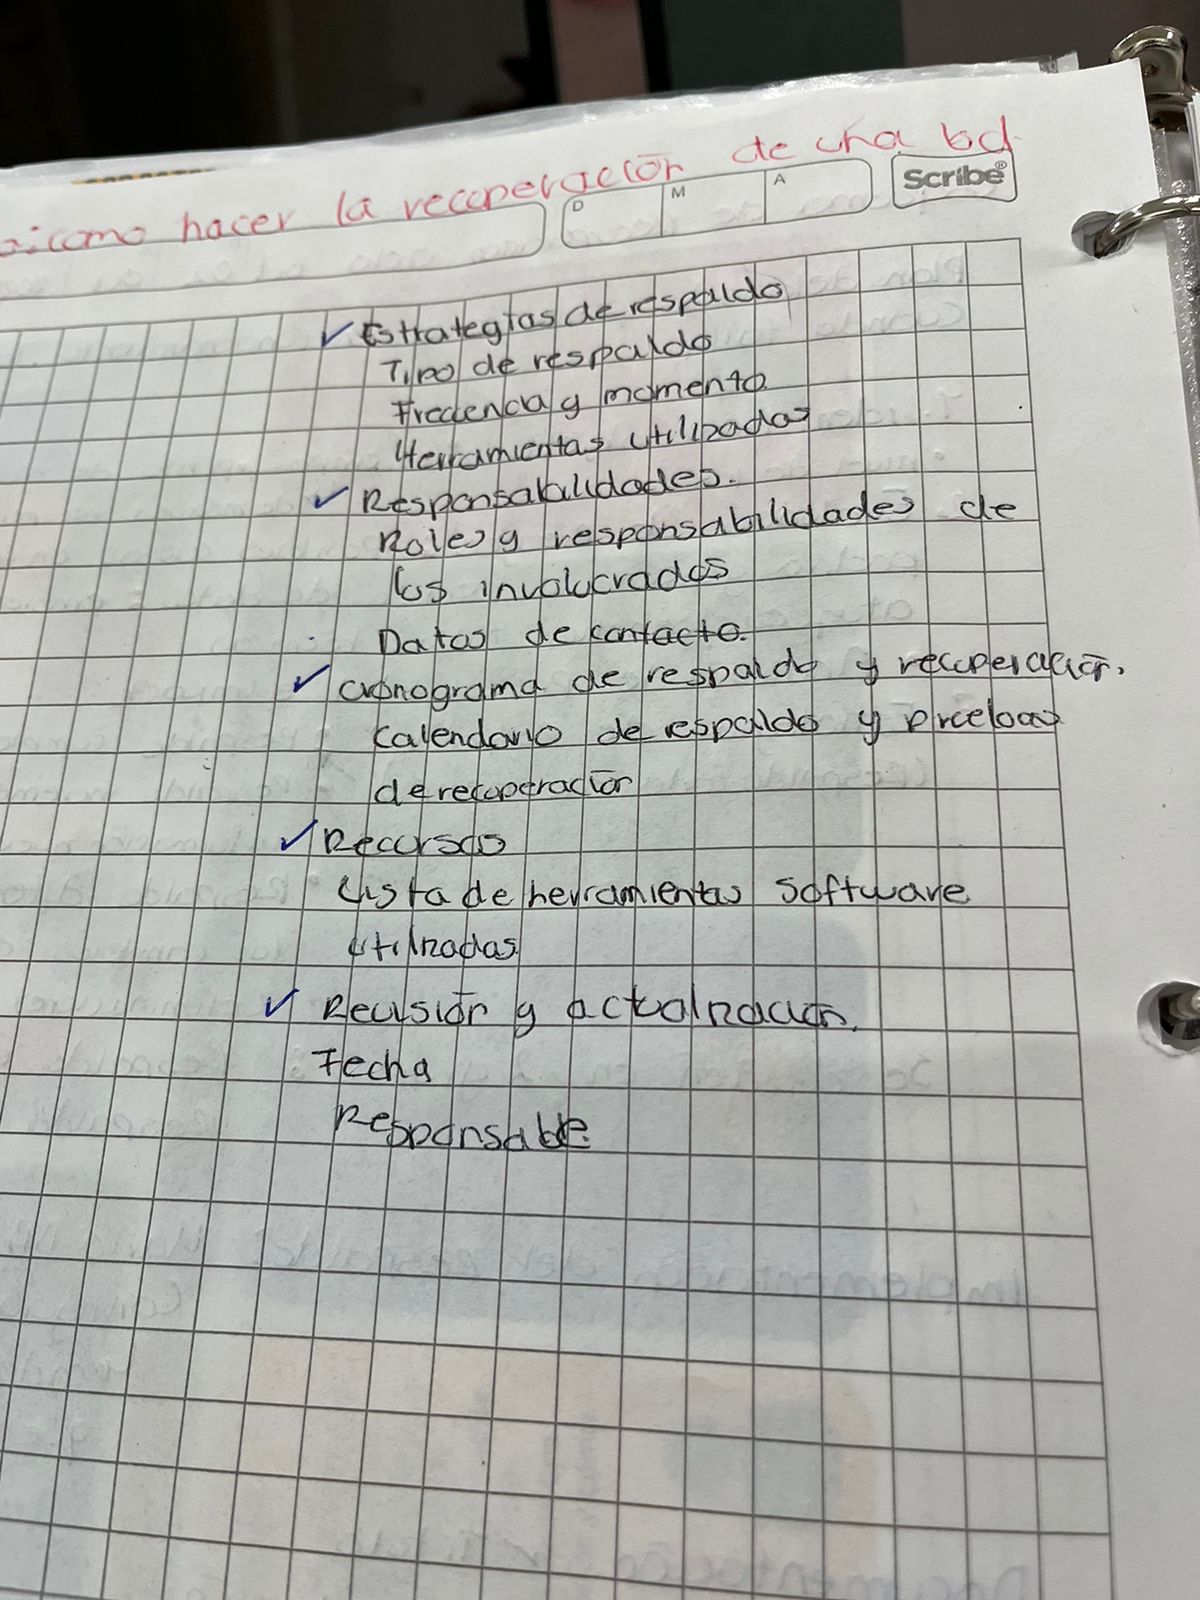 como hacer la recuperación de una bd
Scribe®
D M A
✓ Estrategias de respaldo
Tipo de respaldo
Frecencia y momento
Herramientas utilizadas
✓ Responsabilidades.
Roles y responsabilidades de
los involucrados
Datos de contacto.
✓ cronograma de respaldo y recuperación.
Calendario de respaldo y prcebas
de recuperación
✓ Recursos
Lista de herramientas software
utilizadas
✓ Revisión y actualización.
Fecha
Responsable